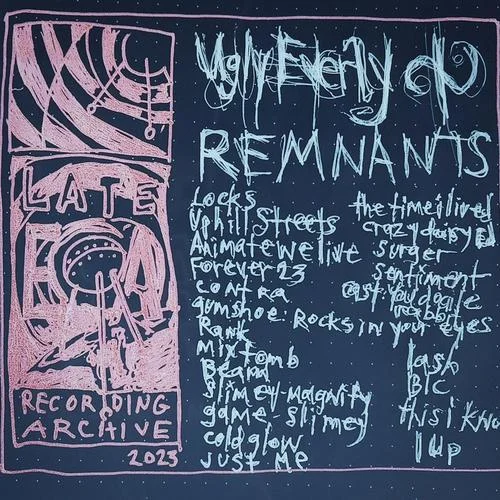 Ugly Everly
REMNANTS
LATE
RECORDING
ARCHIVE
2023
Locks
Uphill Streets
Animate we live
Forever 23
contra
gumshoe: Rocks in your eyes
Rank
Mixtomb
Beard
Slimey-Magnify
game slimey
cold glow
Just Me
the time i lived
crazy daisy
surger
sentiment
east:
rabbit
lash
BIC
this i know
1up